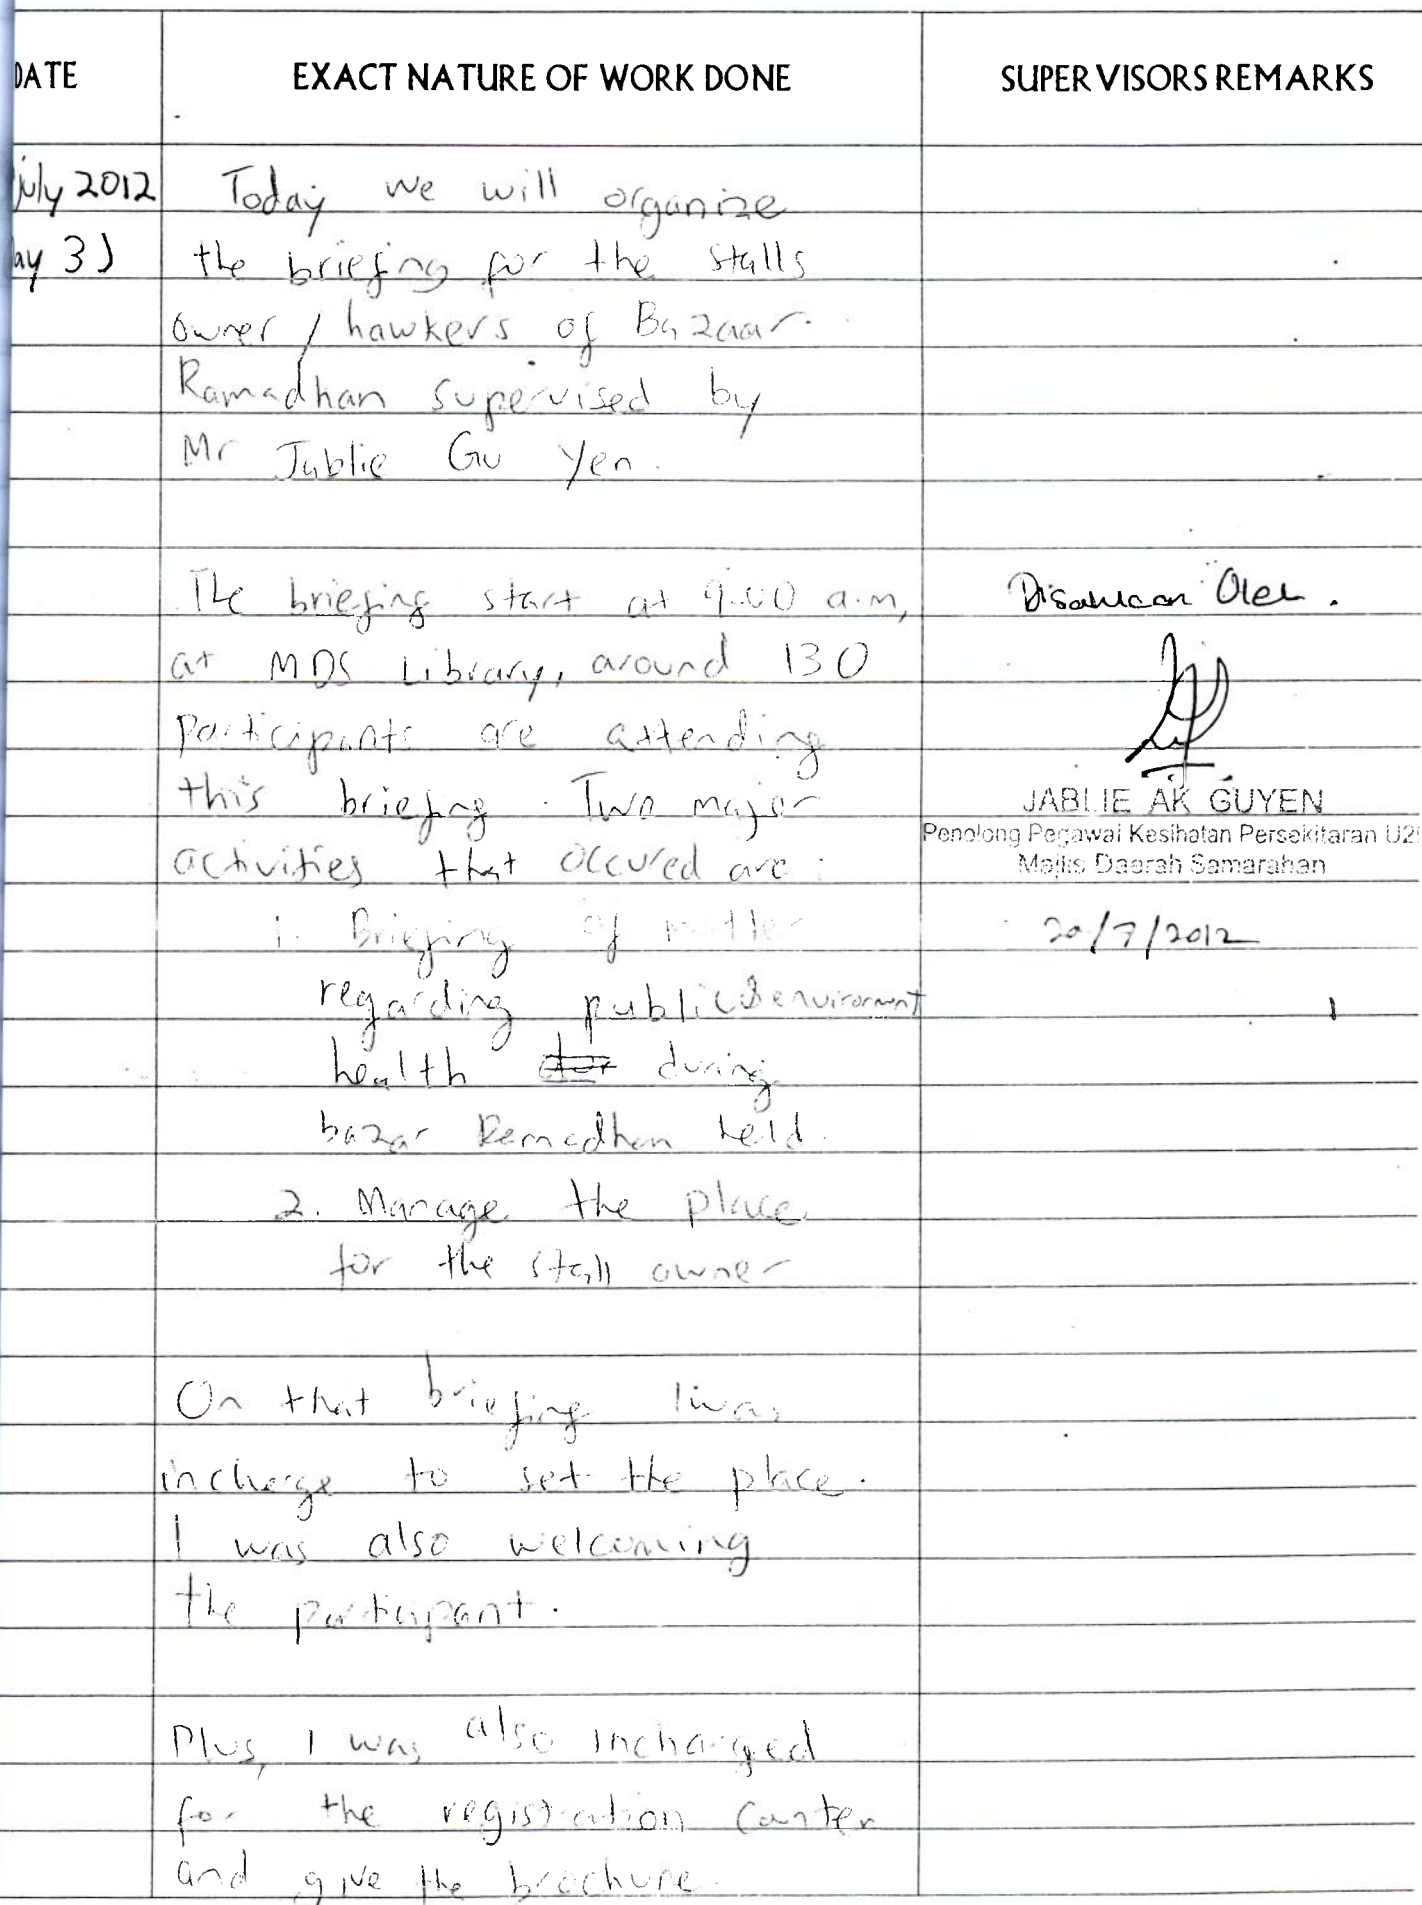 DATE
EXACT NATURE OF WORK DONE
SUPERVISORS REMARKS
july 2012
ay 3)
Today we will organize
the briefing for the stalls
owner / hawkers of Bazaar
Ramadhan supervised by
Mr Jablie Gu Yen.
The briefing start at 9.00 a.m,
at MDS Library, around 130
participants are attending
this briefing. Two major
activities that occured are :
i. Briefing of matter
regarding public & environment
health during
bazar Ramadhan held.
2. Manage the place
for the stall owner
On that briefing I was
incharge to set the place.
I was also welcoming
the participant.
Plus, I was also incharged
for the registration counter
and give the brochure.
Disahkan Oleh.
JABLIE AK GUYEN
Penolong Pegawai Kesihatan Persekitaran U2
Majlis Daerah Samarahan
20/7/2012